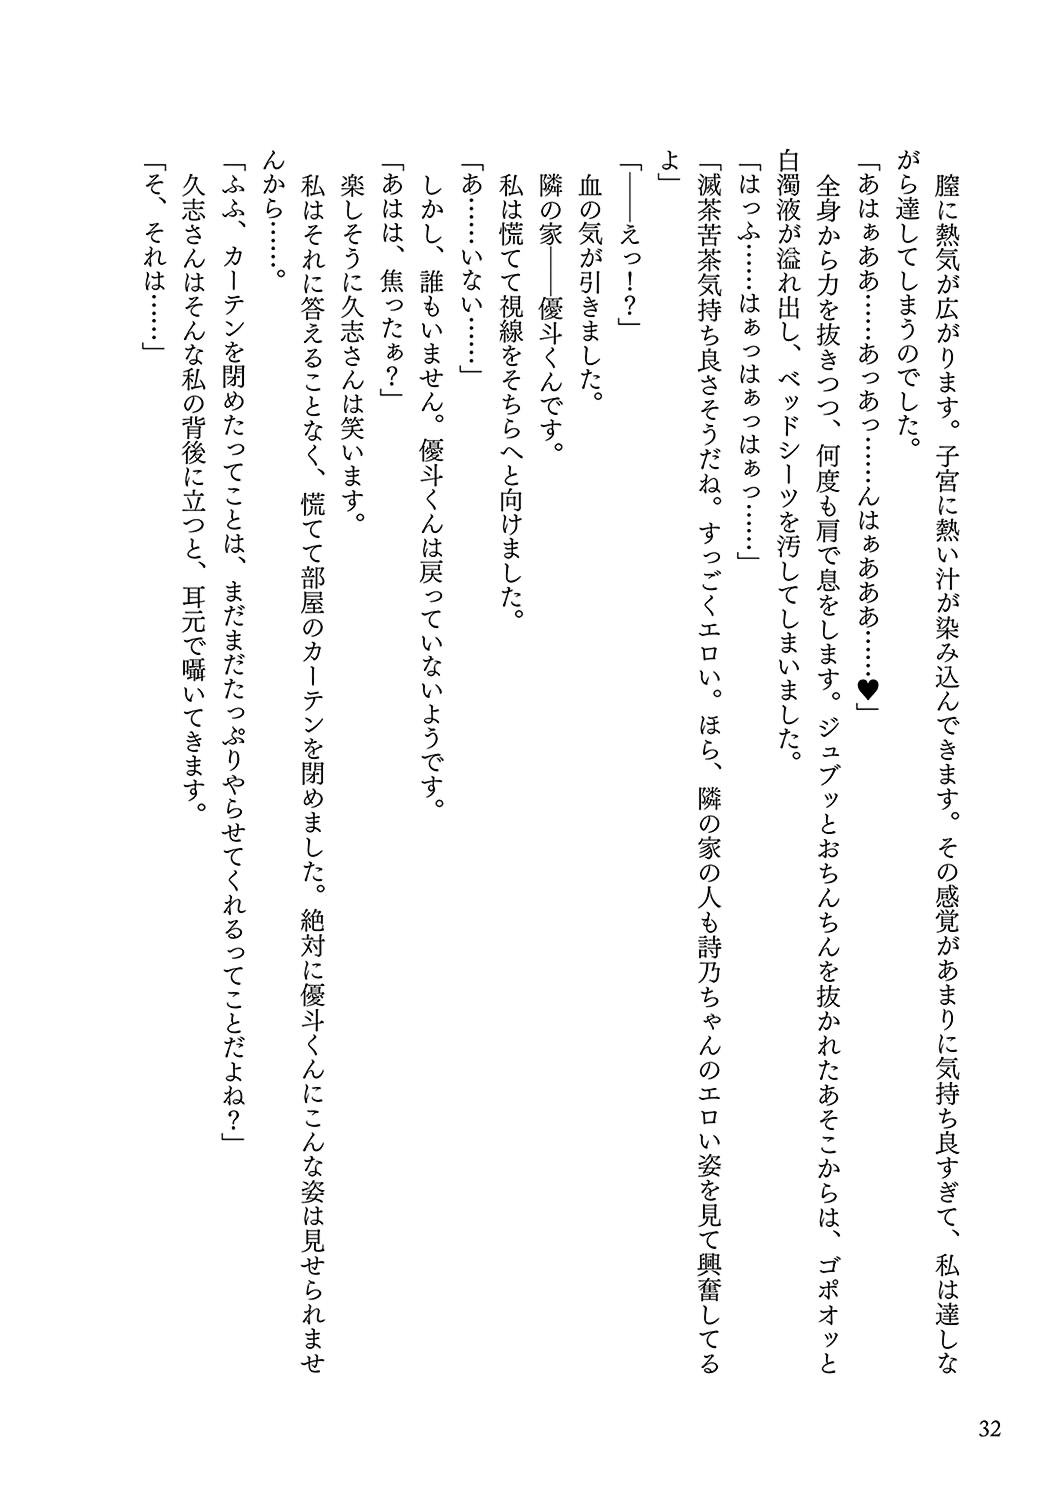 膣に熱気が広がります。子宮に熱い汁が染み込んできます。その感覚があまりに気持ち良すぎて、私は達しな
がら達してしまうのでした。
「あはぁああ……あっあっ……んはぁあああ……♥」
全身から力を抜きつつ、何度も肩で息をします。ジュブッとおちんちんを抜かれたあそこからは、ゴポオッと
白濁液が溢れ出し、ベッドシーツを汚してしまいました。
「はっふ……はぁっはぁっはぁっ……」
「滅茶苦茶気持ち良さそうだね。すっごくエロい。ほら、隣の家の人も詩乃ちゃんのエロい姿を見て興奮してる
よ」
「――えっ！？」
血の気が引きました。
隣の家――優斗くんです。
私は慌てて視線をそちらへと向けました。
「あ……いない……」
しかし、誰もいません。優斗くんは戻っていないようです。
「あはは、焦ったぁ？」
楽しそうに久志さんは笑います。
私はそれに答えることなく、慌てて部屋のカーテンを閉めました。絶対に優斗くんにこんな姿は見せられませ
んから……。
「ふふ、カーテンを閉めたってことは、まだまだたっぷりやらせてくれるってことだよね？」
久志さんはそんな私の背後に立つと、耳元で囁いてきます。
「そ、それは……」
32